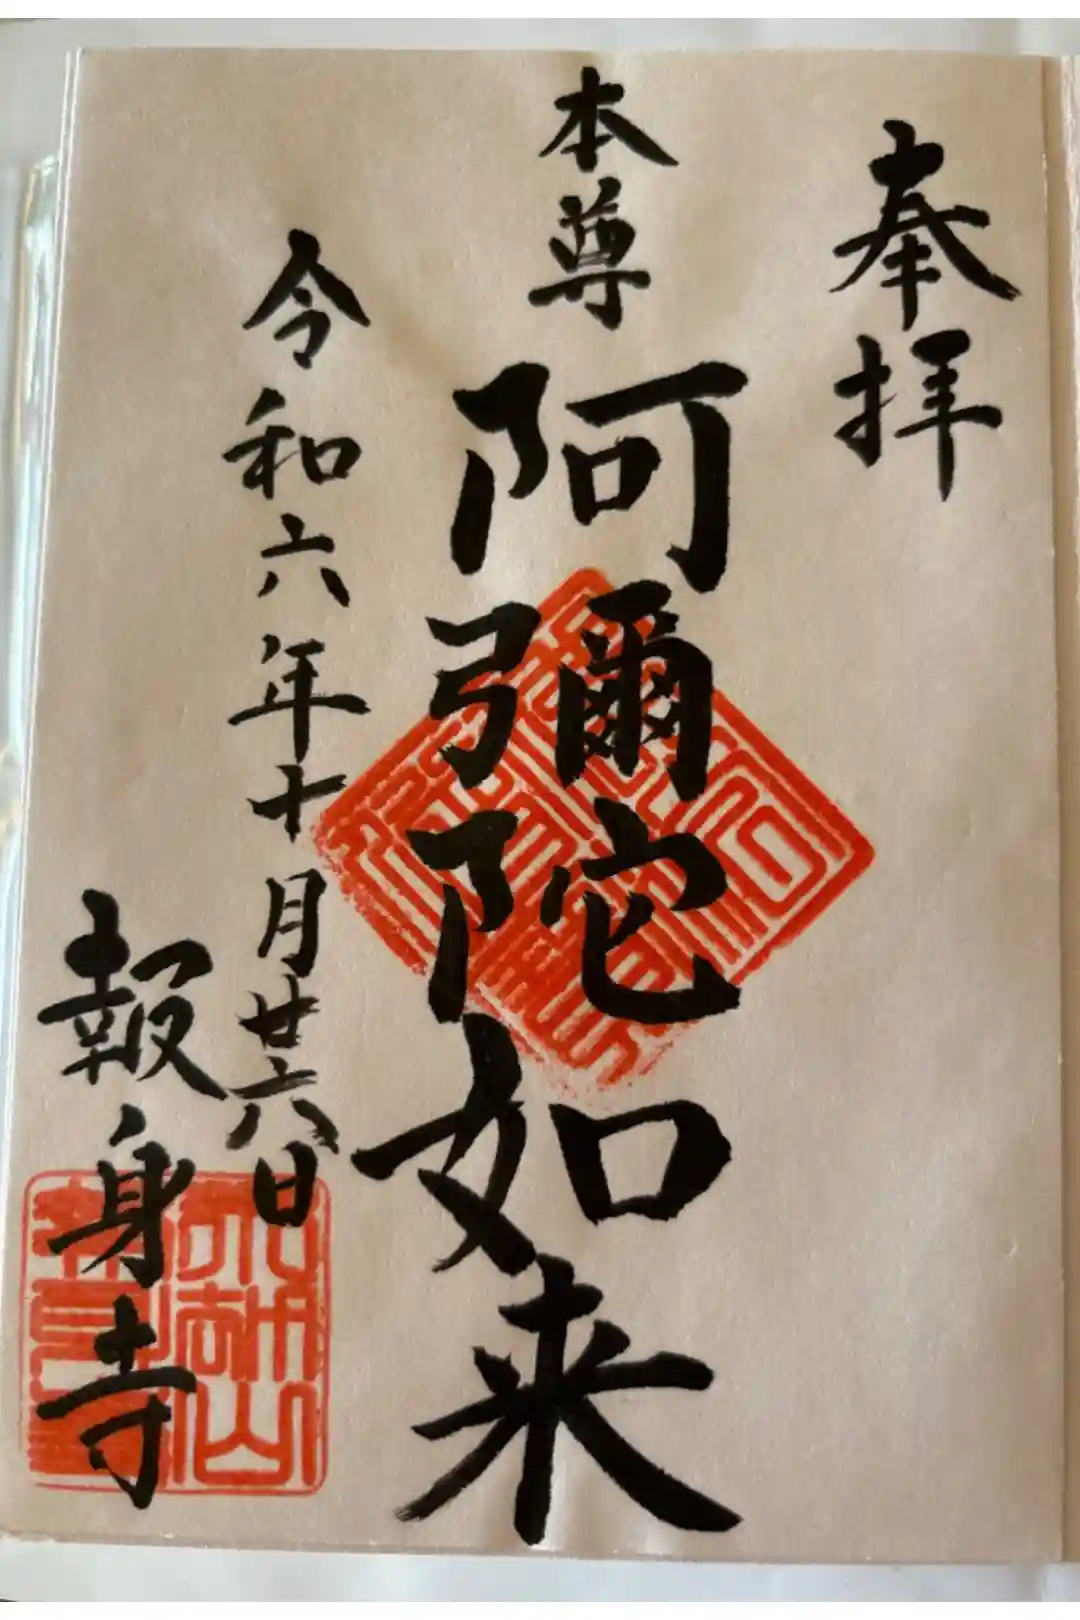 奉拝
本尊
阿彌陀如来
令和六年十月廿六日
報身寺